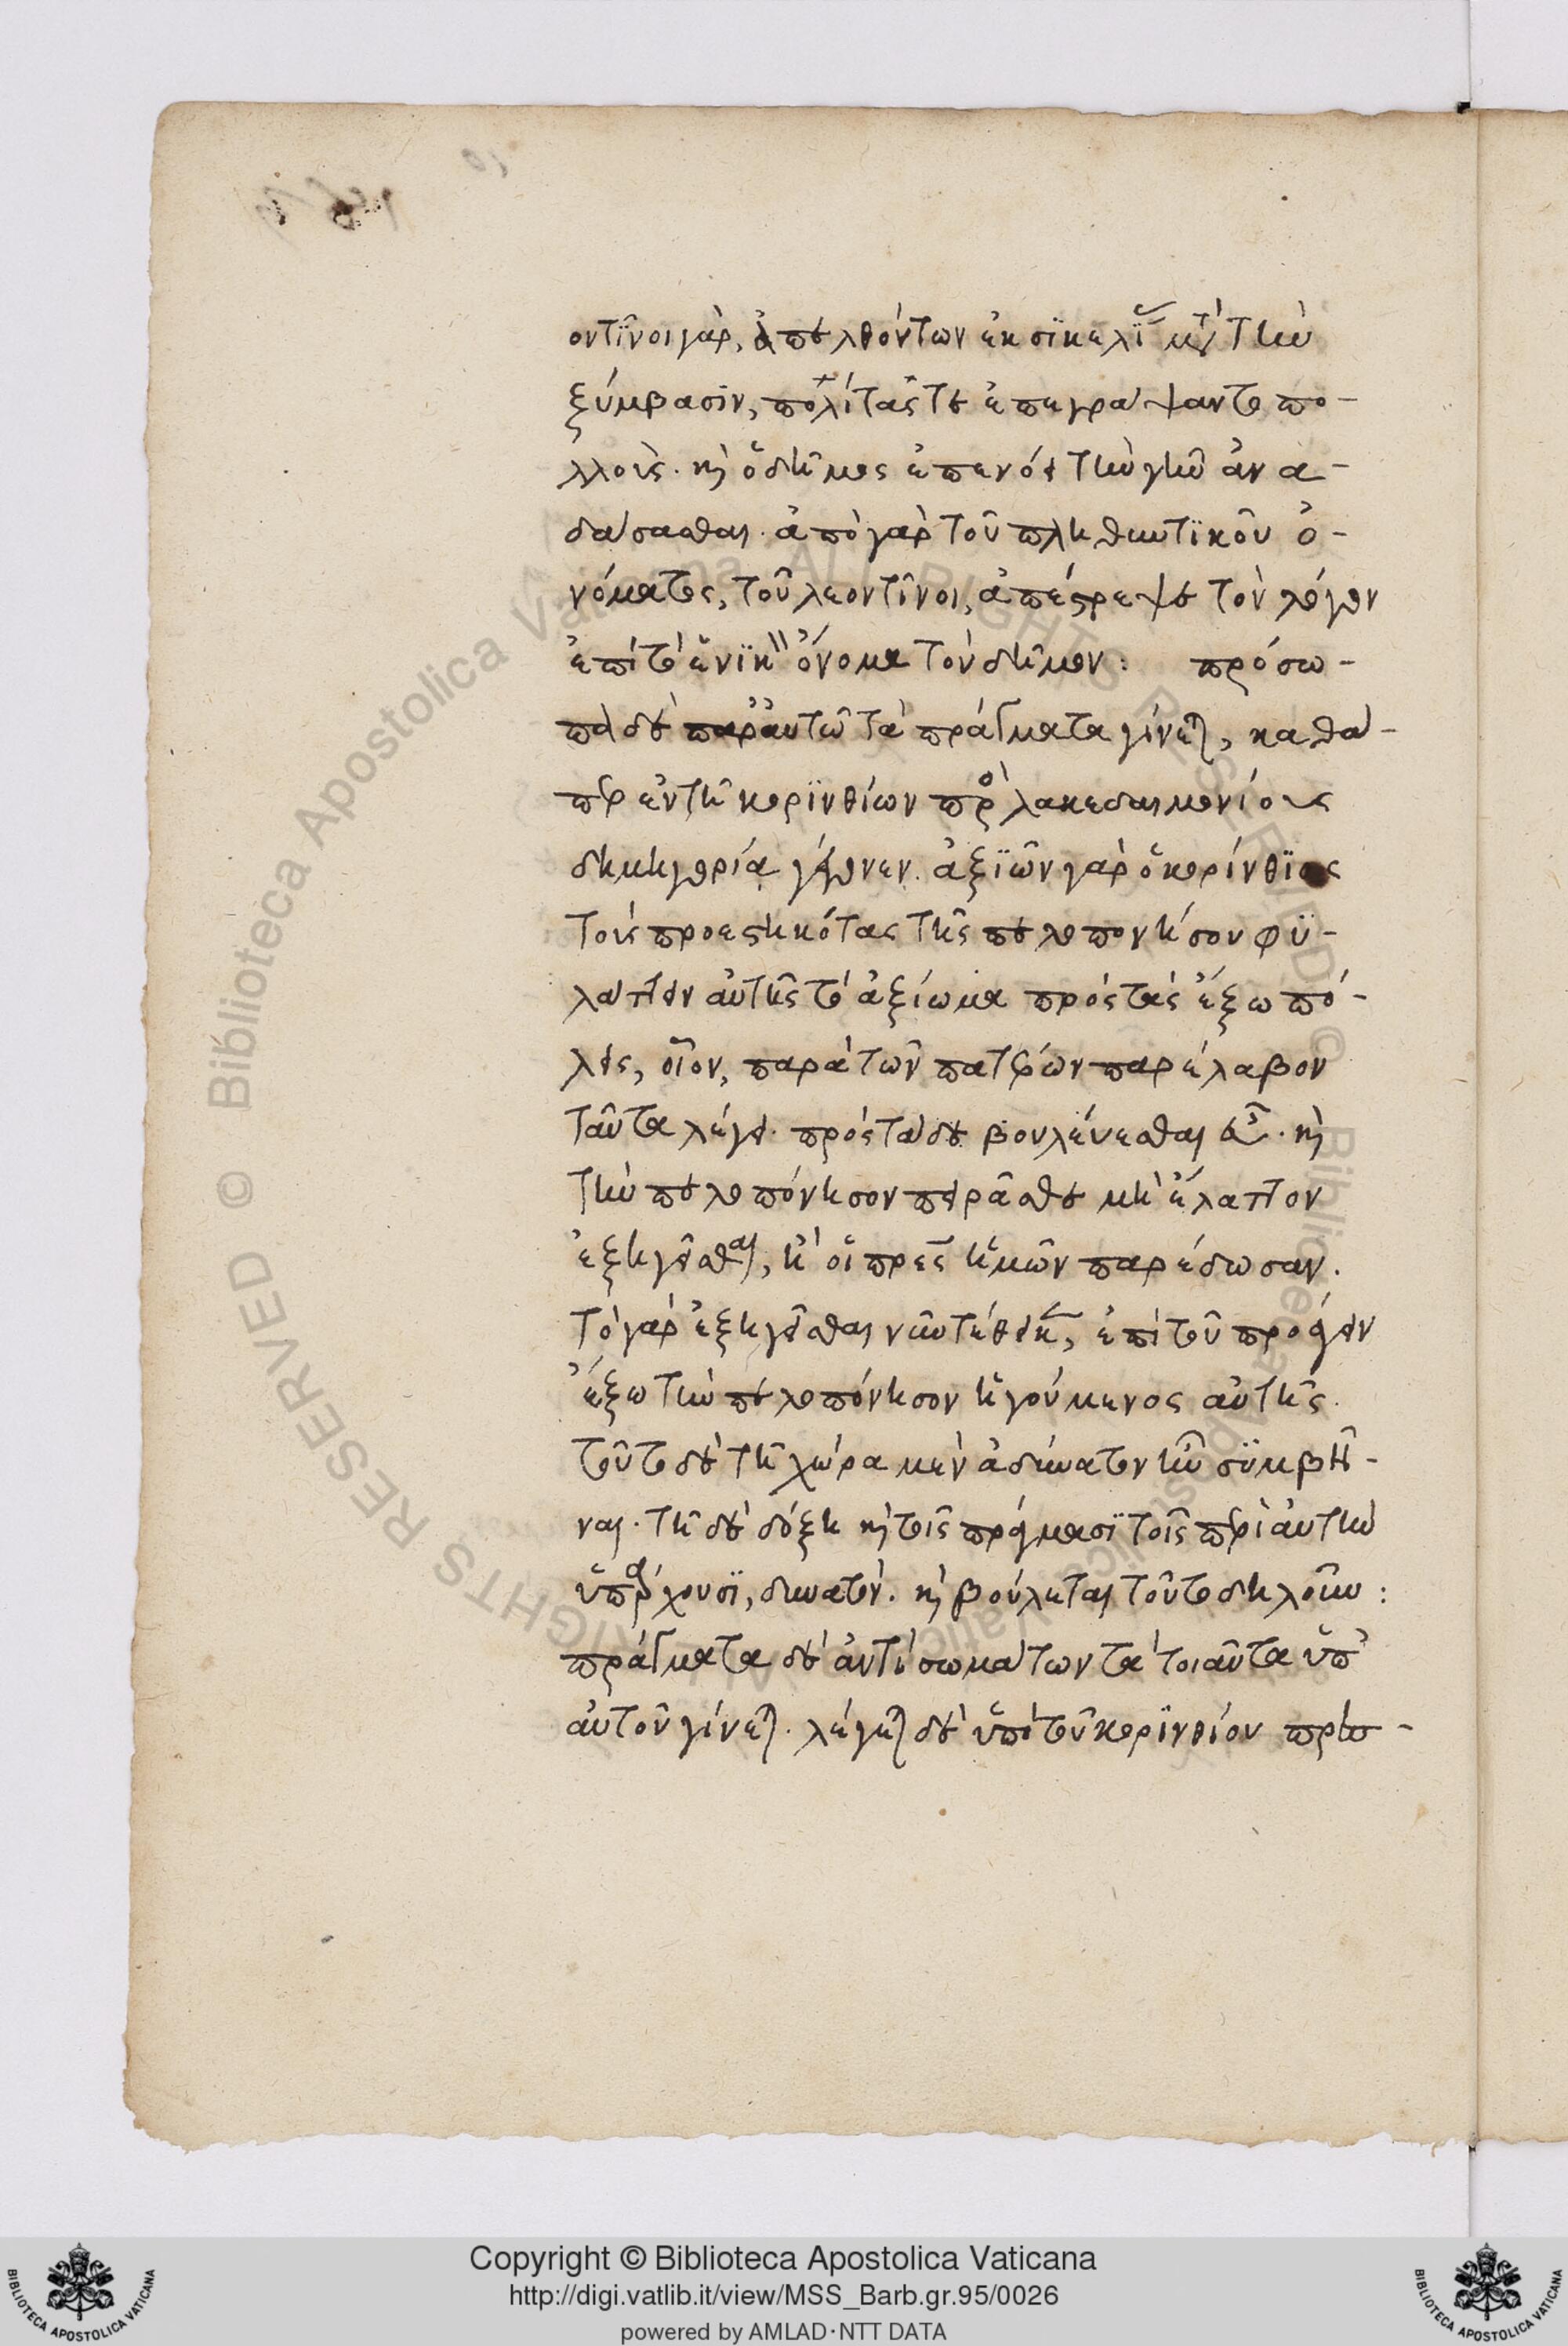 οντῖνοι γὰρ, ἀπελθόντων ἐκ σικελί μτ τὴν
ξύμβασιν, πολίτας τε ἐπεγράψαντο πο-
λλοὺς. κὶ ὁ δῆμος ἐπενόει τὴν γῆν ἀνα-
δάσασθαι. ἀπὸ γὰρ τοῦ πληθυντικοῦ ὀ-
νόματος, τοῦ λεοντῖνοι, ἀπέστρεψε τὸν λόγον
ἐπὶ τὸ ἑνικ ὄνομα τὸν δῆμον: πρόσω-
πα δὲ παρ' αὐτῶ τὰ πράγματα γίνετ, καθά-
περ ἐν τῆ κορινθίων πρὸ λακεδαιμονίους
δημηγορία γέγονεν. ἀξιῶν γὰρ ὁ κορίνθιος
τοὺς προεστηκότας τῆς πελοποννήσου φυ-
λάττειν αὐτῆς τὸ ἀξίωμα πρὸς τὰς ἔξω πό-
λεις, οἷον, παρὰ τῶν πατέρων παρέλαβον
ταῦτα λέγει. πρὸς τάδε βουλεύεσθαι εὖ. κὶ
τὴν πελοπόνησον πειρᾶσθε μὴ ἐλάττον
ἐξηγεῖσθαι, ἢ οἱ πρες ὑμῶν παρέδωσαν.
τὸ γὰρ ἐξηγεῖσθαι νῦν τέθεικ, ἐπὶ τοῦ προάγειν
ἔξω τὴν πελοπόνησον ἡγούμενος αὐτῆς.
τοῦτο δὲ τῆ χώρα μὲν ἀδύνατον ἦν συμβῆ-
ναι. τῆ δὲ δόξη κὶ τοῖς πράγμασι τοῖς περὶ αὐτὴν
ὑπάρχουσι, δυνατὸν. κὶ βούλεται τοῦτο δηλοῦν:
πράγματα δὲ ἀντὶ σωμάτων τὰ τοιαῦτα ὑπ'
αὐτοῦ γίνετ. λέγετ δὲ ὑπὸ τοῦ κορινθίου πρὸσ-
Copyright © Biblioteca Apostolica Vaticana
http://digi.vatlib.it/view/MSS_Barb.gr.95/0026
powered by AMLAD·NTT DATA